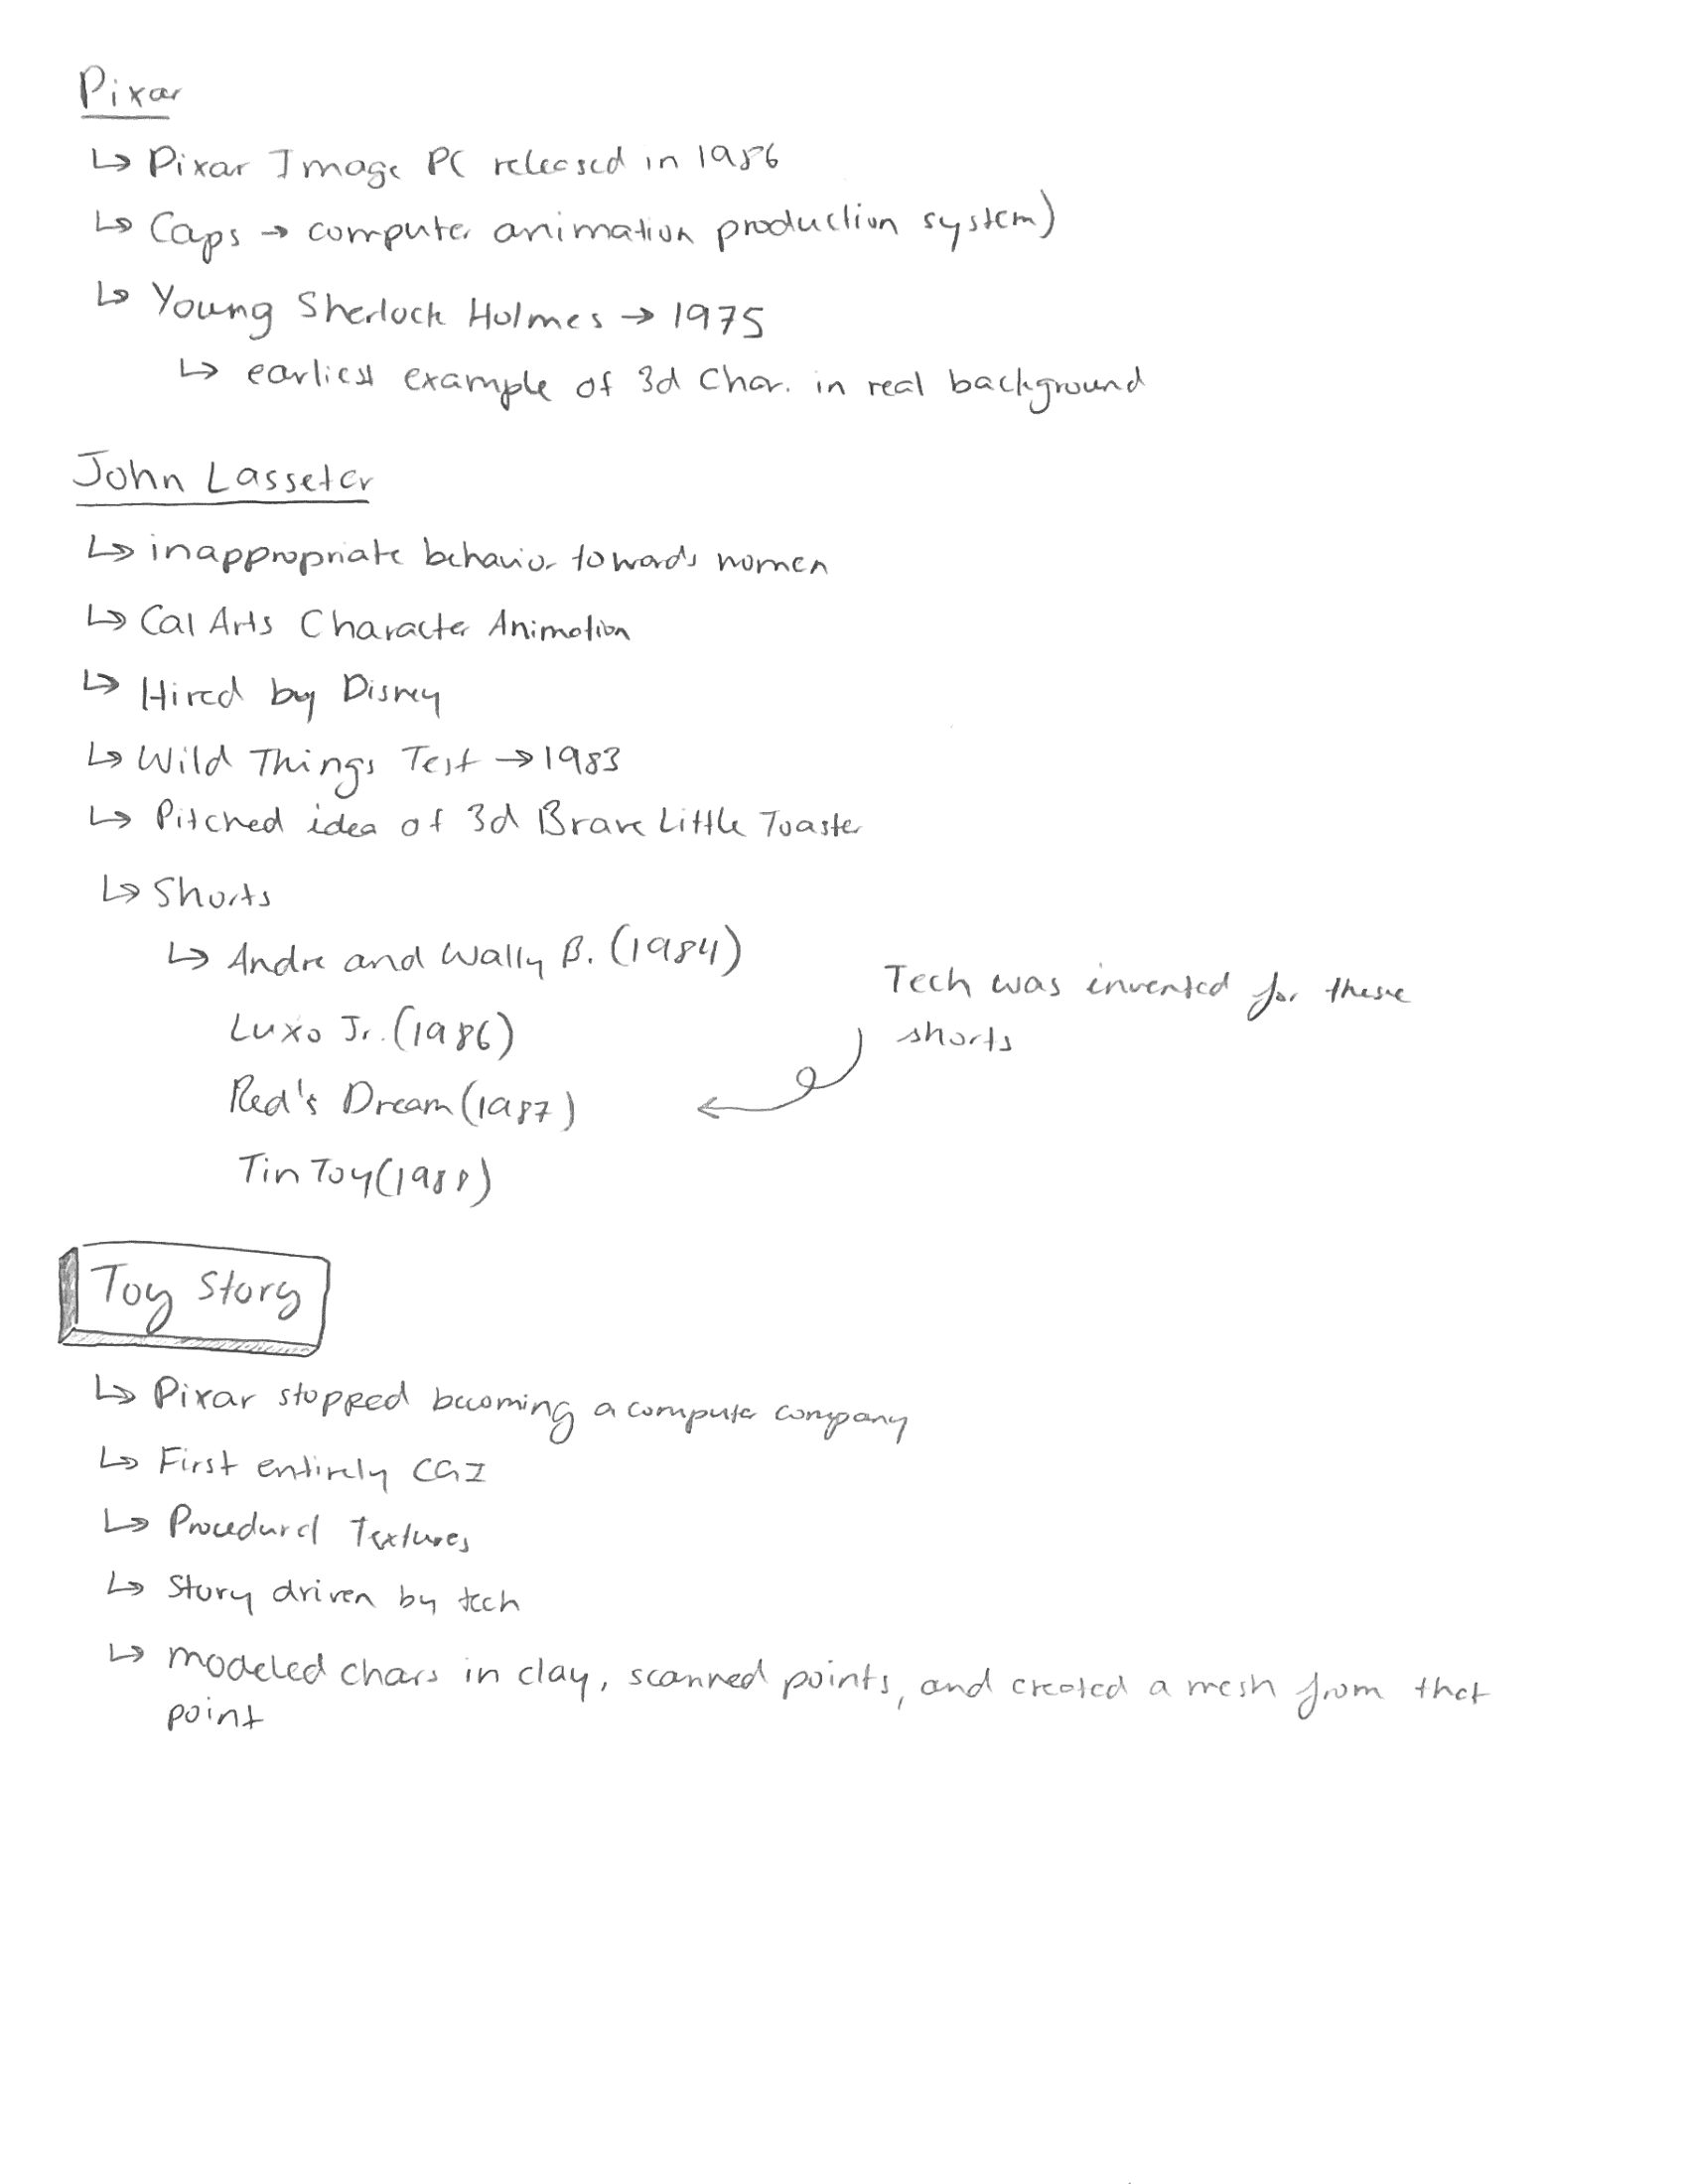 Pixar
↳ Pixar Image PC released in 1986
↳ Caps → computer animation production system)
↳ Young Sherlock Holmes → 1975
↳ earliest example of 3d Char. in real background
John Lasseter
↳ inappropriate behavior towards women
↳ Cal Arts Character Animation
↳ Hired by Disney
↳ Wild Things Test → 1983
↳ Pitched idea of 3d Brave Little Toaster
↳ Shorts
↳ Andre and Wally B. (1984)
Luxo Jr. (1986)
Red's Dream (1987)
Tin Toy (1988)
Tech was invented for these
shorts
Toy Story
↳ Pixar stopped becoming a computer company
↳ First entirely CGI
↳ Procedural Textures
↳ Story driven by tech
↳ modeled chars in clay, scanned points, and created a mesh from that
point